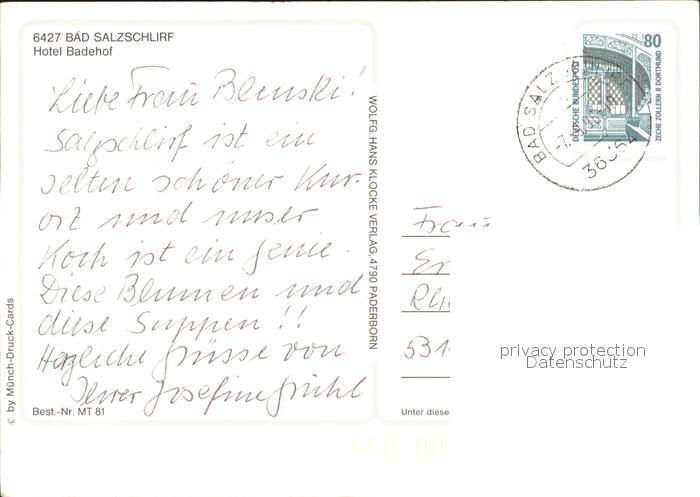 6427 BAD SALZSCHLIRF
Hotel Badehof
Liebe Frau Blenski!
Salzschlirf ist ein
selten schöner Kur-
ort und unser
Koch ist ein Genie.
Diese Blumen und
diese Suppen!!
Herzliche Grüsse von
Ihrer Josefine Grühl
Best.-Nr. MT 81
© by Münch-Druck-Cards
WOLFG. HANS KLOCKE VERLAG, 4790 PADERBORN
80
DEUTSCHE BUNDESPOST
ZECHE ZOLLERN II DORTMUND
BAD SALZ
36364
Frau
Er
Rhe
531
Unter diese
privacy protection
Datenschutz